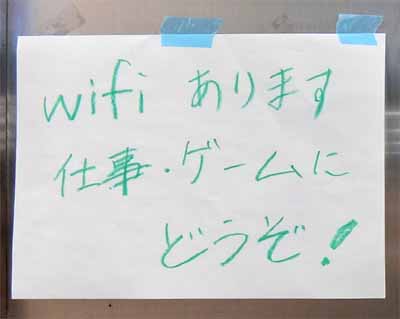 wifi あります
仕事・ゲームに
どうぞ！